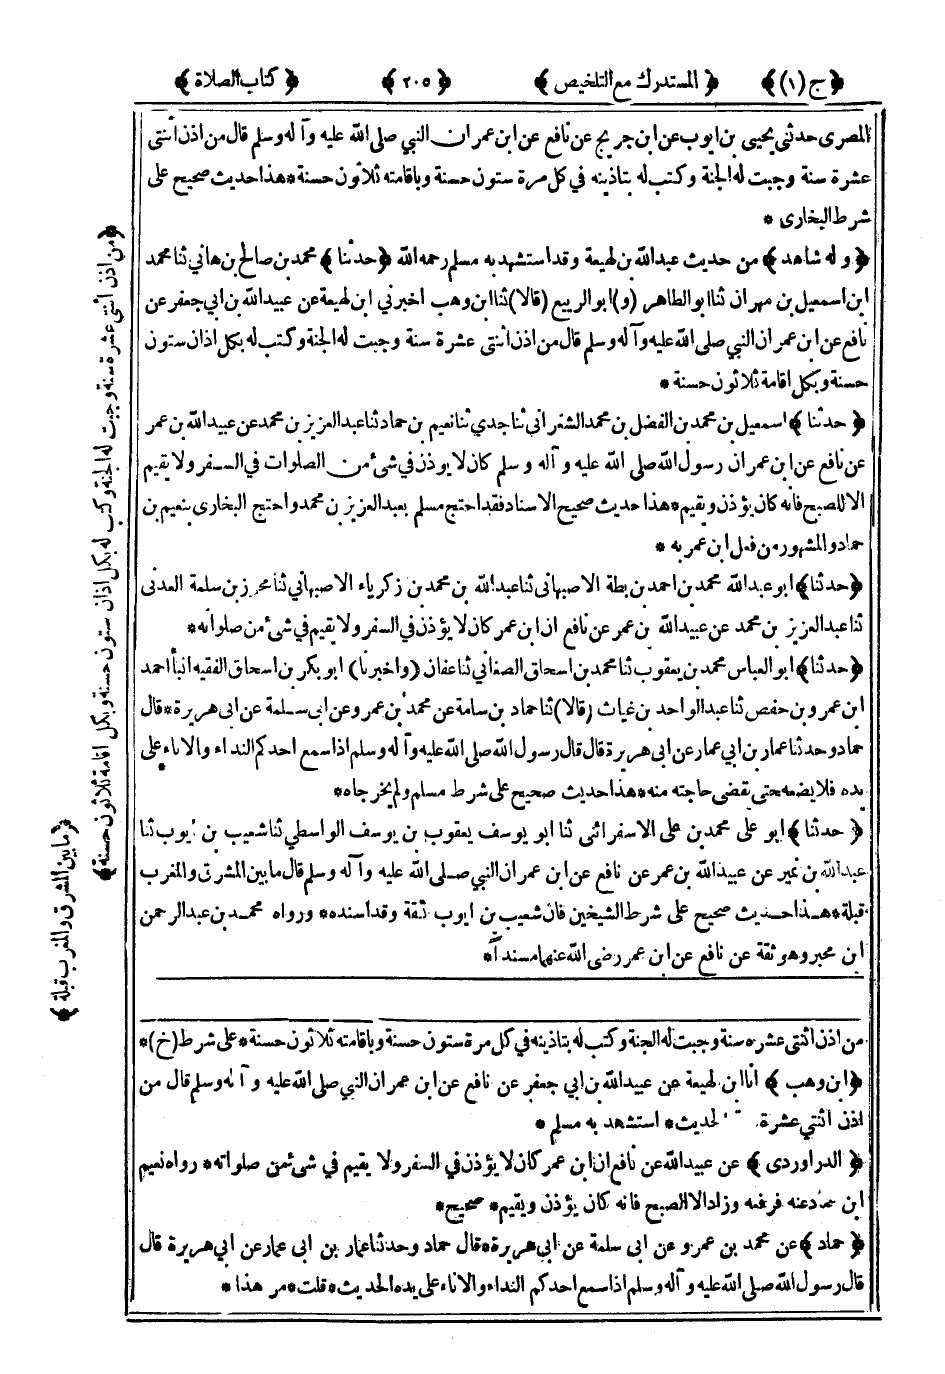 ﴿ ج (١) ﴾ ﴿ المستدرك مع التلخيص ﴾ ﴿ ٢٠٥ ﴾ ﴿ كتاب الصلاة ﴾
المصرى حدثنى يحيى بن ايوب عن ابن جريج عن نافع عن ابن عمر ان النبي صلى الله عليه وآله وسلم قال من اذن اثنتى
عشرة سنة وجبت له الجنة وكتب له بتاذينه في كل مرة ستون حسنة وباقامته ثلاثون حسنة * هذا حديث صحيح على
شرط البخارى *
﴿ وله شاهد ﴾ من حديث عبد الله بن لهيعة وقد استشهد به مسلم رحمه الله ﴿ حدثنا ﴾ محمد بن صالح بن هاني ثنا محمد
ابن اسمعيل بن مهران ثنا ابو الطاهر (و) ابو الربيع (قالا) ثنا ابن وهب اخبرني ابن لهيعة عن عبيد الله بن ابي جعفر عن
نافع عن ابن عمر ان النبي صلى الله عليه وآله وسلم قال من اذن اثنتى عشرة سنة وجبت له الجنة وكتب له بكل اذان ستون
حسنة وبكل اقامة ثلاثون حسنة *
﴿ حدثنا ﴾ اسمعيل بن محمد بن الفضل بن محمد الشعرانى ثنا جدي ثنا نعيم بن حماد ثنا عبد العزيز بن محمد عن عبيد الله بن عمر
عن نافع عن ابن عمر ان رسول الله صلى الله عليه وآله وسلم كان لا يوذن في شئ من الصلوات في السفر ولا يقيم
الا للصبح فانه كان يؤذن ويقيم * هذا حديث صحيح الاسناد فقد احتج مسلم بعبد العزيز بن محمد واحتج البخارى بنعيم بن
حماد والمشهور من فعل ابن عمر به *
﴿ حدثنا ﴾ ابو عبد الله محمد بن احمد بن بطة الاصبهانى ثنا عبد الله بن محمد بن زكرياء الاصبهاني ثنا محرز بن سلمة العدنى
ثنا عبد العزيز بن محمد عن عبيد الله بن عمر عن نافع ان ابن عمر كان لا يؤذن في السفر ولا يقيم في شئ من صلواته *
﴿ حدثنا ﴾ ابو العباس محمد بن يعقوب ثنا محمد بن اسحاق الصغاني ثنا عفان (واخبرنا) ابو بكر بن اسحاق الفقيه انبأ احمد
ابن عمرو بن حفص ثنا عبد الواحد بن غياث (قالا) ثنا حماد بن سلمة عن محمد بن عمرو عن ابى سلمة عن ابى هريرة * قال
حماد وحدثنا عمار بن ابي عمار عن ابى هريرة قال قال رسول الله صلى الله عليه وآله وسلم اذا سمع احدكم النداء والاناء على
يده فلا يضعه حتى يقضى حاجته منه * هذا حديث صحيح على شرط مسلم ولم يخرجاه *
﴿ حدثنا ﴾ ابو على محمد بن على الاسفرائنى ثنا ابو يوسف يعقوب بن يوسف الواسطي ثنا شعيب بن ايوب ثنا
عبد الله بن نمير عن عبيد الله بن عمر عن نافع عن ابن عمر ان النبي صلى الله عليه وآله وسلم قال ما بين المشرق والمغرب
قبلة * هذا حديث صحيح على شرط الشيخين فان شعيب بن ايوب ثقة وقد اسنده * ورواه محمد بن عبد الرحمن
ابن مجبر وهو ثقة عن نافع عن ابن عمر رضى الله عنهما مسنداً *
من اذن اثنتى عشره سنة وجبت له الجنة وكتب له بتاذينه في كل مرة ستون حسنة وباقامته ثلاثون حسنة * على شرط (خ) *
﴿ ابن وهب ﴾ انا ابن لهيعة عن عبيد الله بن ابي جعفر عن نافع عن ابن عمر ان النبي صلى الله عليه وآله وسلم قال من
اذن اثنتي عشرة الحديث * استشهد به مسلم *
﴿ الدراوردى ﴾ عن عبيد الله عن نافع ان ابن عمر كان لا يؤذن في السفر ولا يقيم في شئ من صلواته * رواه نعيم
ابن حماد عنه فرفعه وزاد الا الصبح فانه كان يؤذن ويقيم * صحيح *
﴿ حماد ﴾ عن محمد بن عمرو عن ابى سلمة عن ابى هريرة * قال حماد وحدثنا عمار بن ابى عمار عن ابى هريرة قال
قال رسول الله صلى الله عليه وآله وسلم اذا سمع احدكم النداء والاناء على يده الحديث * قلت * مر هذا *
﴿ من اذن اثنتى عشرة سنة وجبت له الجنة وكتب له بكل اذان ستون حسنة وبكل اقامة ثلاثون حسنة ﴾
﴿ ما بين المشرق والمغرب قبلة ﴾